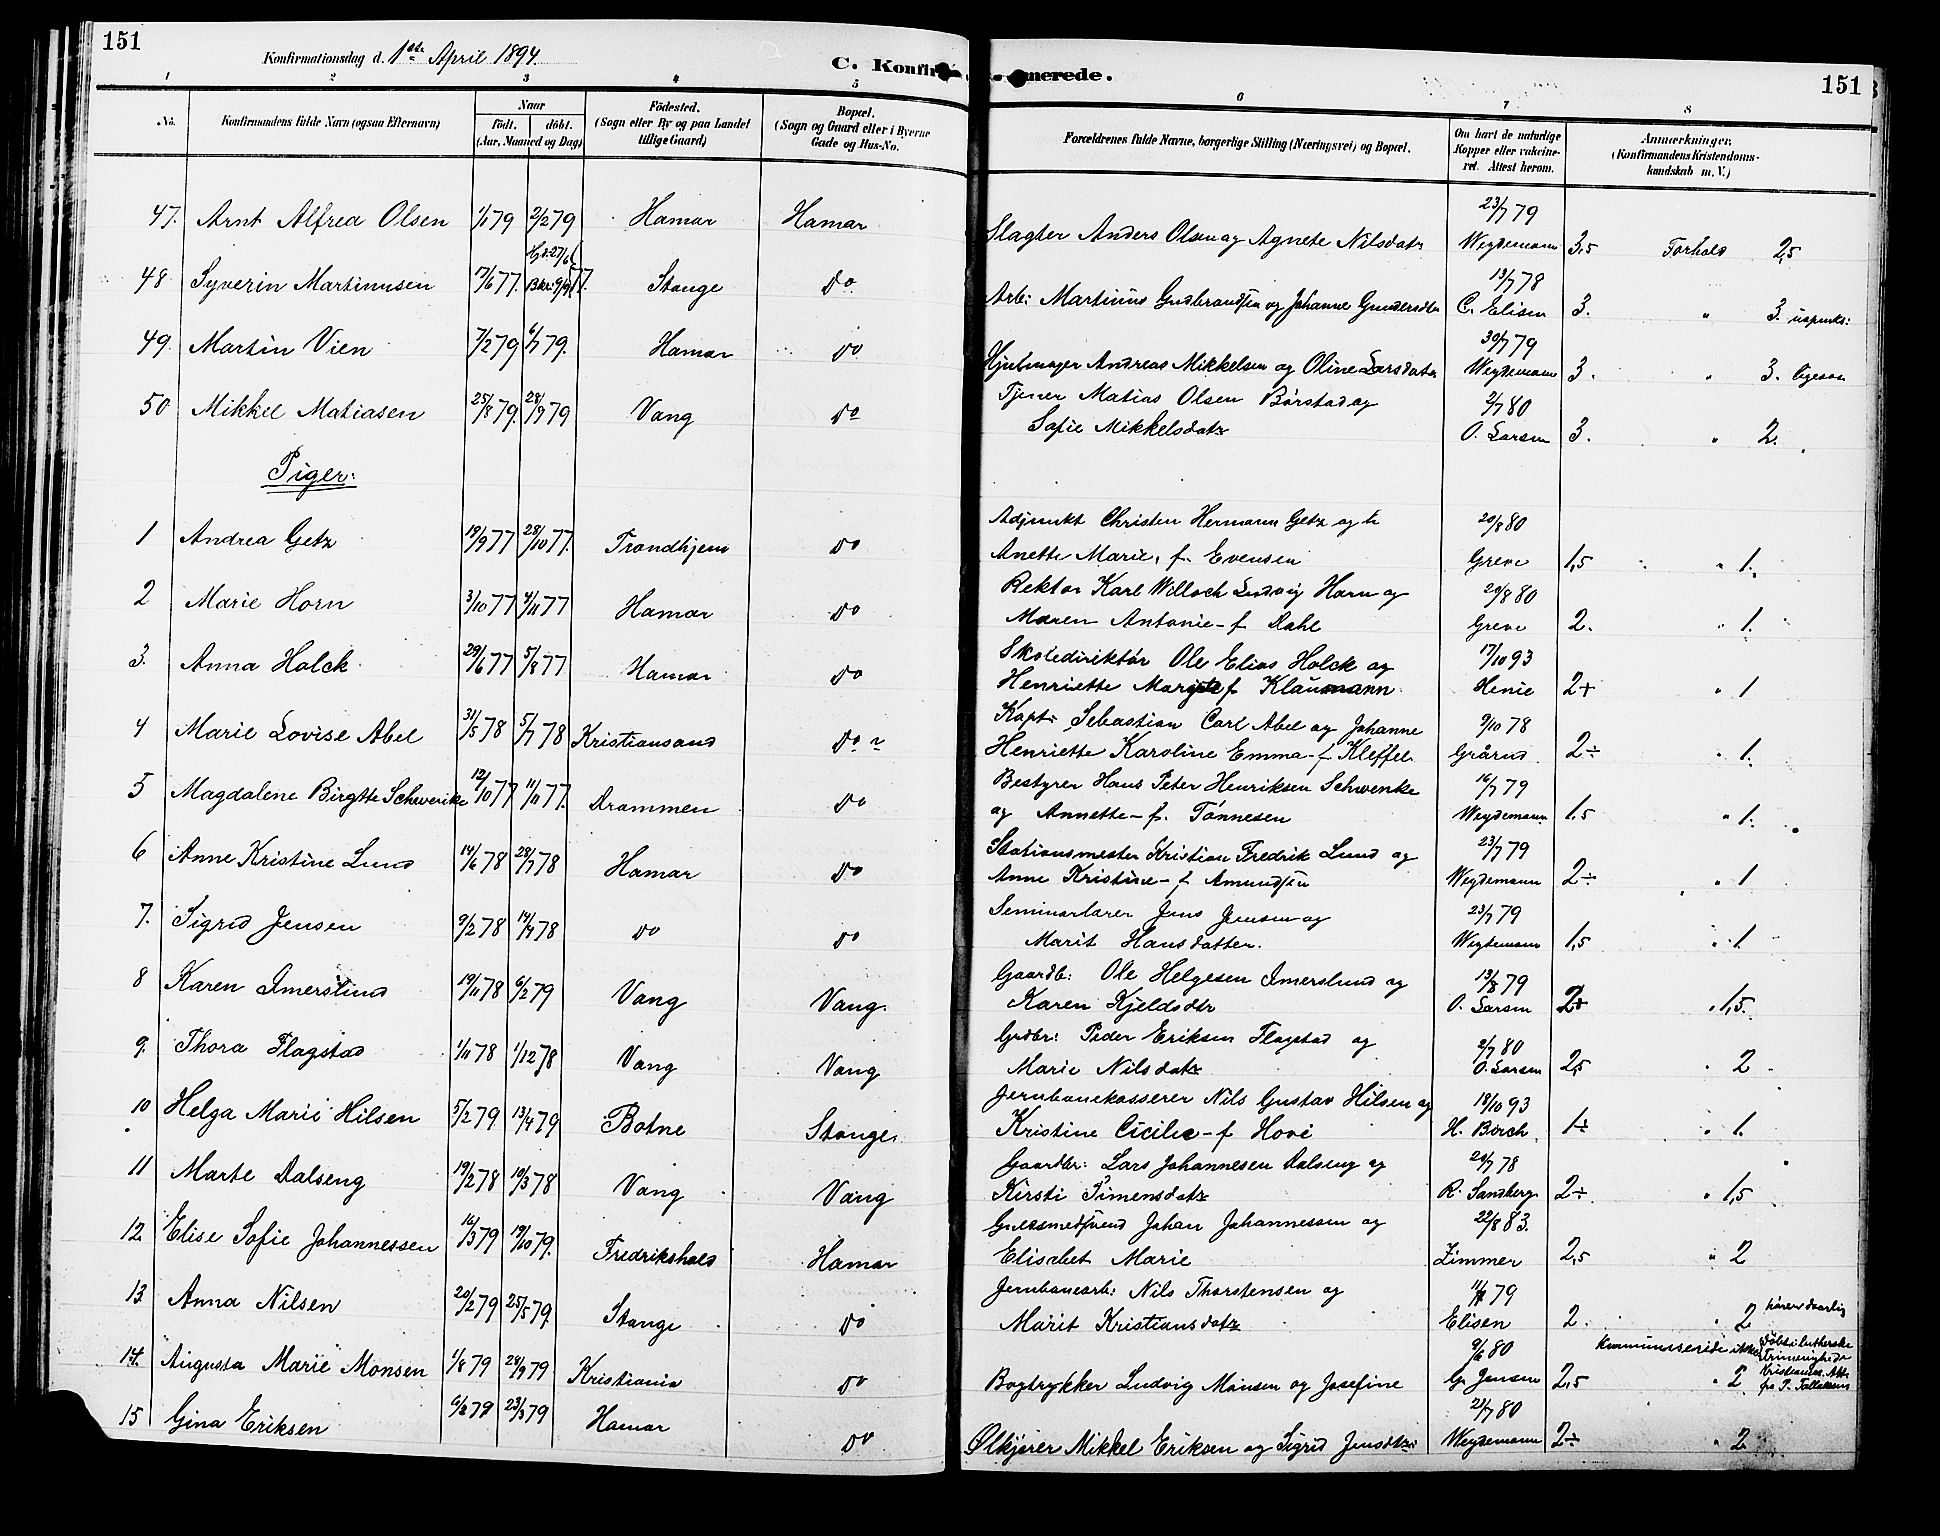 151
Konfirmationsdag d. 1ste April 1894.
C. Konfirmerede.
151
1 2 3 4 5 6 7 8
No.
Konfirmandens fulde Navn (ogsaa Efternavn)
Naar
födt. döbt.
(Aar, Maaned og Dag)
Födested.
(Sogn eller By og paa Landet
tillige Gaard)
Bopæl.
(Sogn og Gaard eller i Byerne
Gade og Hus-No.
Forældrenes fulde Navne, borgerlige Stilling (Næringsvei) og Bopæl.
Om havt de naturlige
Kopper eller vakcine-
ret. Attest herom.
Anmærkninger.
(Konfirmandens Kristendoms-
kundskab m. V.)
47. Arnt Alfred Olsen 1/1 79 2/2 79 Hamar Hamar Slagter Anders Olsen og Agnete Nilsdatr 23/7 79 Weydemann 3,5 Forhold 2,5
48 Syverin Martinusen 17/6 77. Hjd. 27/6 Bkr. 9/9 77. Stange Do Arb: Martinus Gudbrandsen og Johanne Gundersdtr 13/7 78 C. Elisen 3. " 3.
49. Martin Vien 7/2 79 6/7 79. Hamar Do Hjulmager Andreas Mikkelsen og Oline Larsdatr 30/7 79 Weydemann 3. " 3.
50 Mikkel Matiasen 25/8 79. 28/9 79 Vang Do Tjener Matias Olsen Börstad og
Sofie Mikkelsdatr 2/7 80 O. Larsen 3. " 2.
Piger:
1 Andrea Getz 19/9 77 28/10 77. Trondhjem Do Adjunkt Christen Hermann Getz og h
Anette Marie, f. Evensen 20/8 80 Greve 1,5 " 1.
2 Marie Horn 3/10 77 4/11 77 Hamar Do Rektor Karl Willoch Ludvig Horn og
Maren Antonie - f. Dahl 20/8 80 Greve 2. " 1.
3. Anna Holck 29/6 77 5/8 77 Hamar Do Skoledirektör Ole Elias Holck og
Henriette Margrete f Klausmann 17/10 93 Henie 2+ " 1
4 Marie Lovise Abel 31/5 78 5/7 78 Kristiansand Do Kapt. Sebastian Carl Abel og Johanne
Henriette Karoline Emma - f Kleffel 9/10 78 Grårud 2÷ " 1.
5 Magdalene Birgitte Schwenke 12/10 77 11/11 77. Drammen Do Bestyrer Hans Peter Henriksen Schwenke
og Annette - f. Tönnesen 16/7 79 Weydemann 1,5 " 1.
6 Anne Kristine Lund 14/6 78 28/7 78 Hamar Do Stationsmester Kristian Fredrik Lund og
Anne Kristine - f Amundsen 23/7 79 Weydemann 2÷ " 1
7. Sigrid Jensen 9/2 78 14/4 78 Do Do Seminarlærer Jens Jensen og
Marit Hansdatter. 23/7 79 Weydemann 1,5 " 1.
8 Karen Imerslund 19/11 78 6/2 79 Vang Vang. Gaardb: Ole Helgesen Imerslund og
Karen Kjeldsdtr 13/8 79 O. Larsen 2+ " 1,5.
9. Thora Flagstad 1/11 78 1/12 78 Vang Vang Grdbr: Peder Eriksen Flagstad og
Marie Nilsdatr 2/7 80 O. Larsen 2,5 " 2
10 Helga Marie Hilsen 5/2 79 13/4 79 Botne Stange Jernbanekasserer Nils Gustav Hilsen og
Kristine Cicilie - f Hovi 18/10 93 H. Borch 1÷ " 1.
11 Marte Dalseng 19/2 78 10/3 78 Vang Vang Gaardbr: Lars Johannesen Dalseng og
Kirsti Simensdatr 20/7 78 R. Sandberg 2÷ " 1,5
12 Elise Sofie Johannessen 16/3 79 19/10 79. Fredrikshald Hamar Johan Johannessen og
Elisabet Marie 22/8 83. Zimmer 2,5 " 2
13. Anna Nilsen 20/2 79 25/5 79. Stange Do Jernbanearb: Nils Thorstensen og
Marit Kristiansdatr 79 Elisen 2. " 2 hörer daarlig
14. Augusta Marie Monsen 1/8 79 28/9 79 Kristiania Do Bogtrykker Ludvig Monsen og Josefine 9/6 80 G. Jensen 2,5 " 2 kommunicerede ikke
Döbt i lutherske
15 Gina Eriksen 6/2 79 23/3 79 Hamar Do Ölkjörer Mikkel Eriksen og Sigrid Jensdtr 21/7 80 Weydemann 2÷ " 2